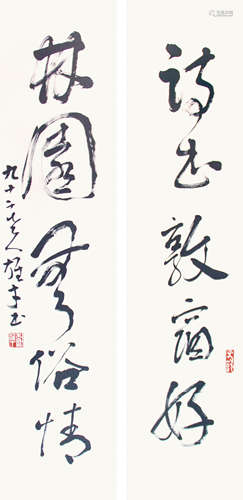 詩書敦宿好
林園無俗情
九十二老人雄才書